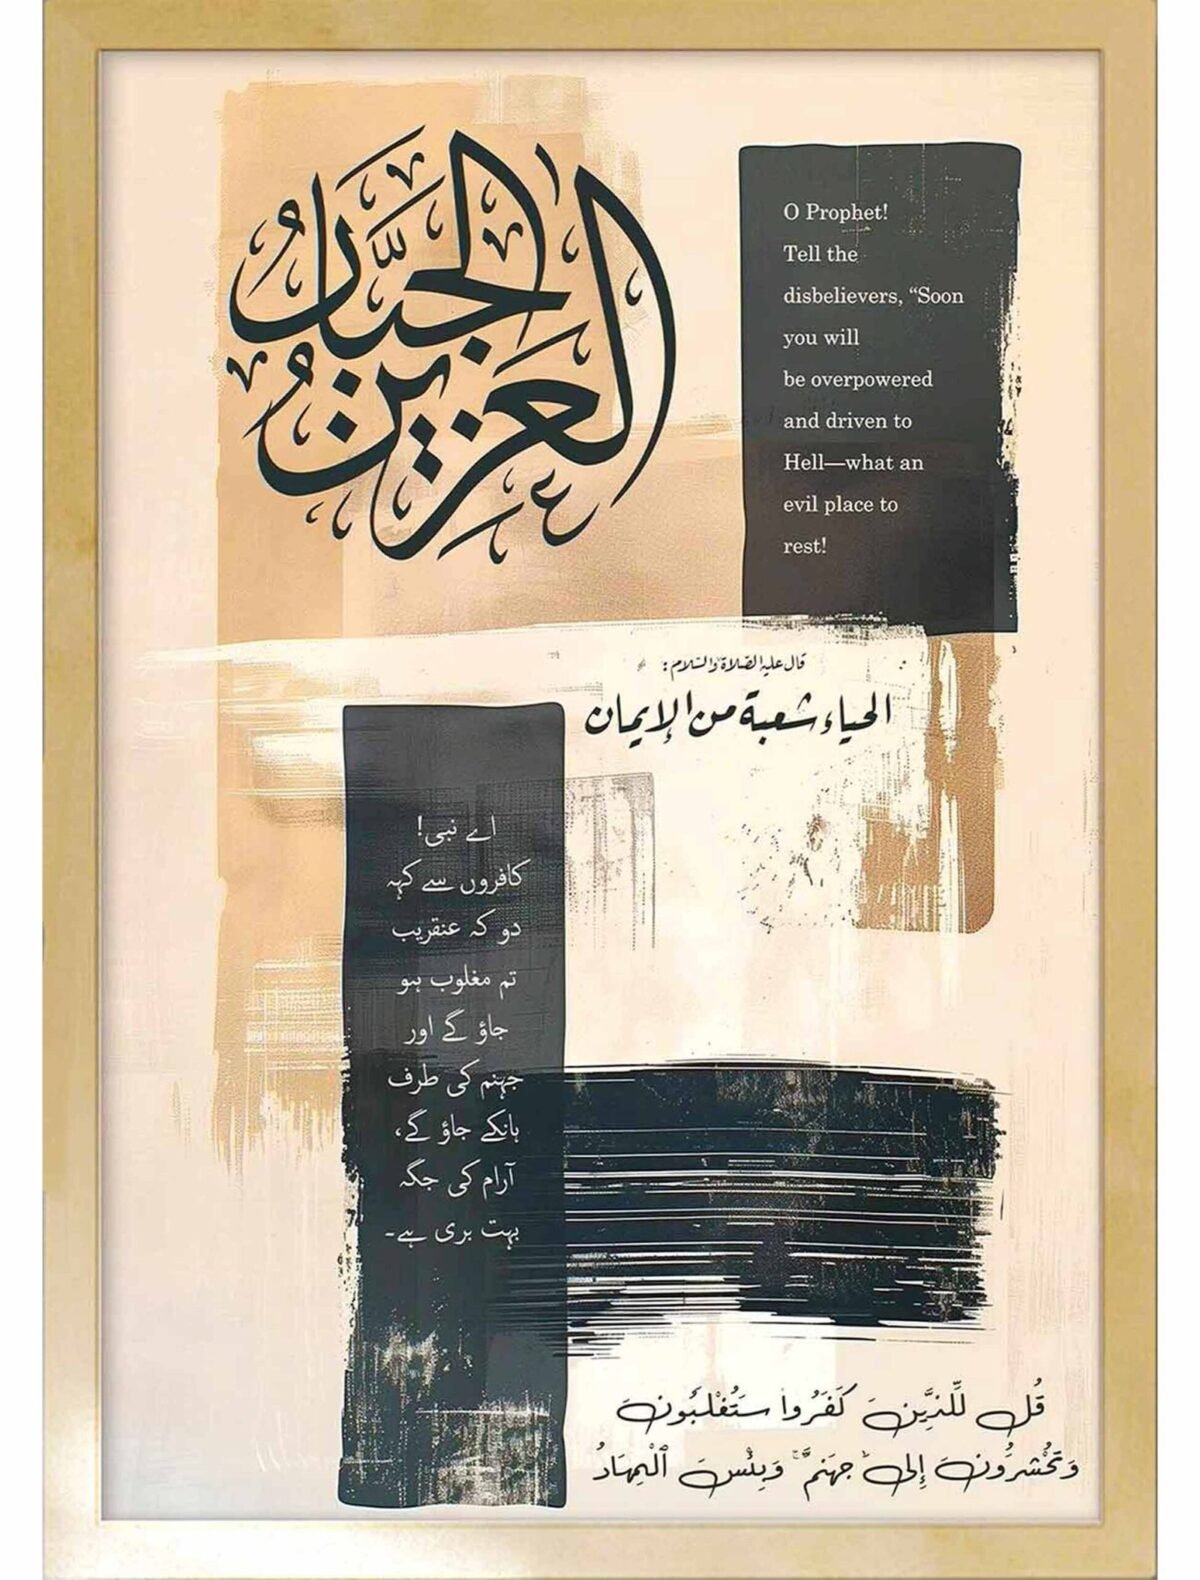 العزيز
الجبار
O Prophet!
Tell the
disbelievers, “Soon
you will
be overpowered
and driven to
Hell—what an
evil place to
rest!
قال عليه الصلاة والسلام:
الحياء شعبة من الإيمان
اے نبی!
کافروں سے کہہ
دو کہ عنقریب
تم مغلوب ہو
جاؤ گے اور
جہنم کی طرف
ہانکے جاؤ گے،
آرام کی جگہ
بہت بری ہے۔
قُل لِّلَّذِينَ كَفَرُوا سَتُغْلَبُونَ
وَتُحْشَرُونَ إِلَىٰ جَهَنَّمَ ۚ وَبِئْسَ الْمِهَادُ